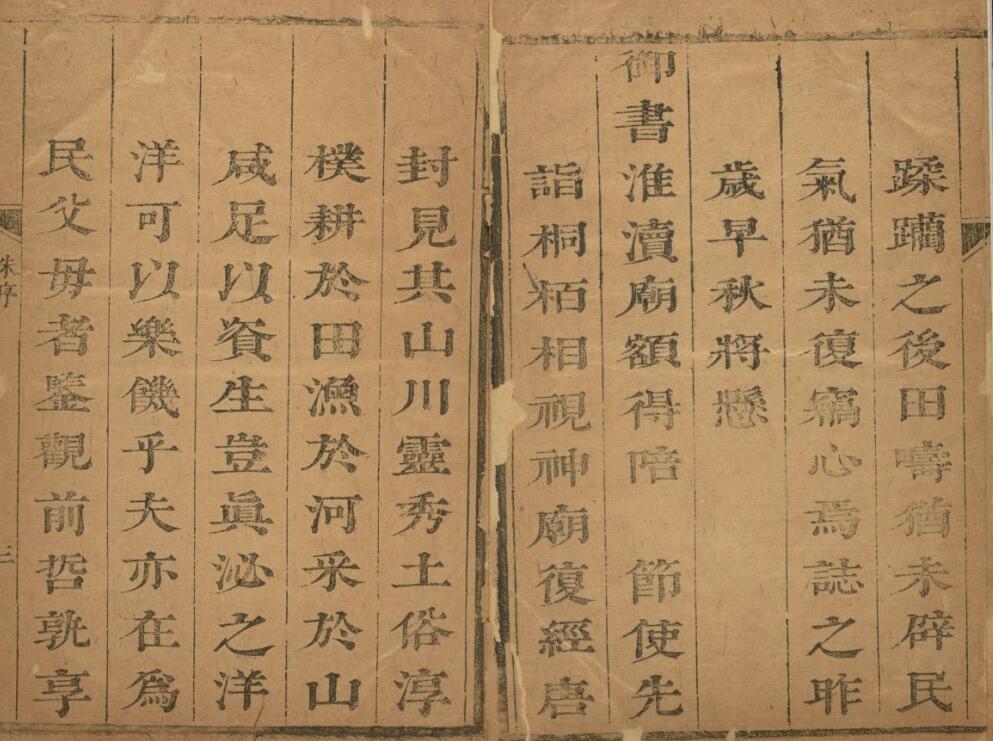 蹂躪之後田疇猶未辟民
氣猶未復竊心焉誌之昨
歲早秋將懸
御書淮瀆廟額得陪　節使先
詣桐栢相視神廟復經唐
封見其山川靈秀土俗淳
樸耕於田漁於河采於山
咸足以資生豈眞泌之洋
洋可以樂饑乎夫亦在爲
民父母者鑒觀前哲孰享
朱序
三